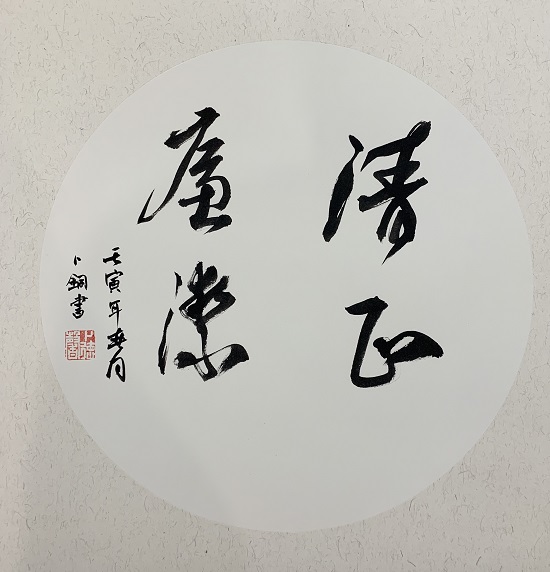 清正
廉潔
壬寅年春月
卜鋼書